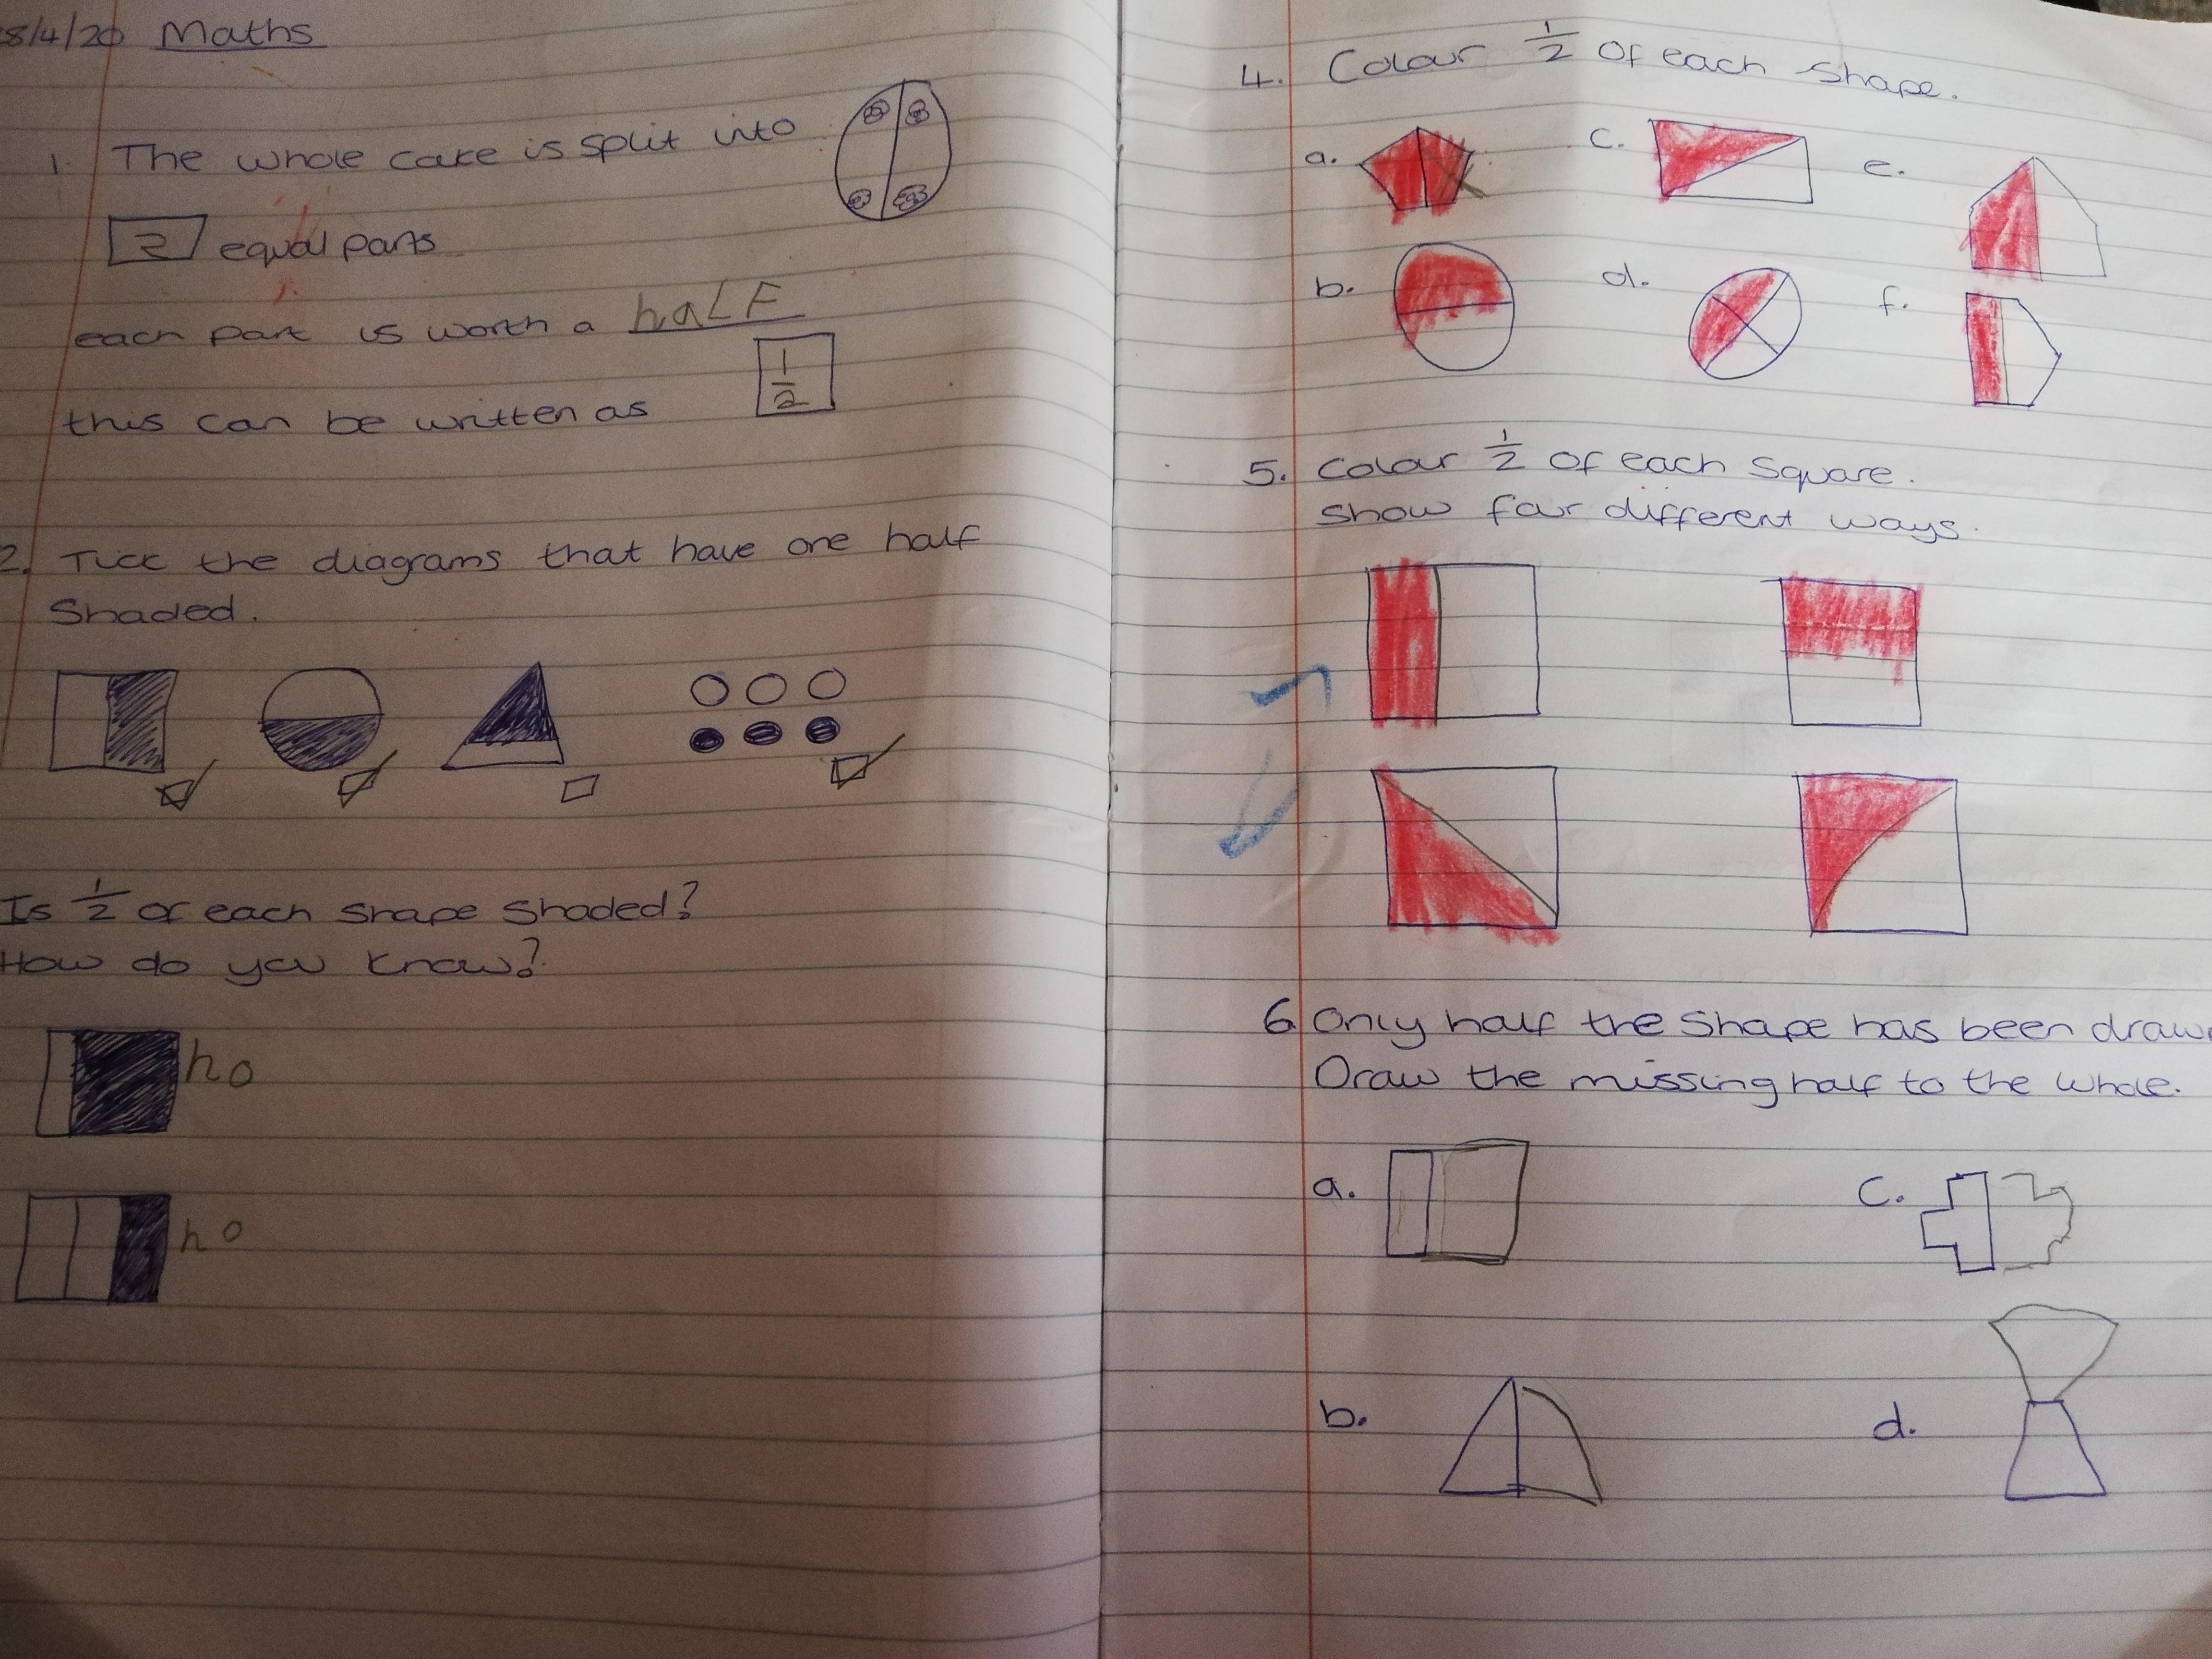 8/4/20 Maths
1. The whole cake is split into
2 equal parts
each part is worth a haLF
this can be written as 1/2
2. Tick the diagrams that have one half
Shaded.
Is 1/2 of each shape shaded?
How do you know?
no
no
4. Colour 1/2 of each shape.
a. c. e.
b. d. f.
5. Colour 1/2 of each square.
Show four different ways.
6 Only half the shape has been drawn
Draw the missing half to the whole.
a. c.
b. d.